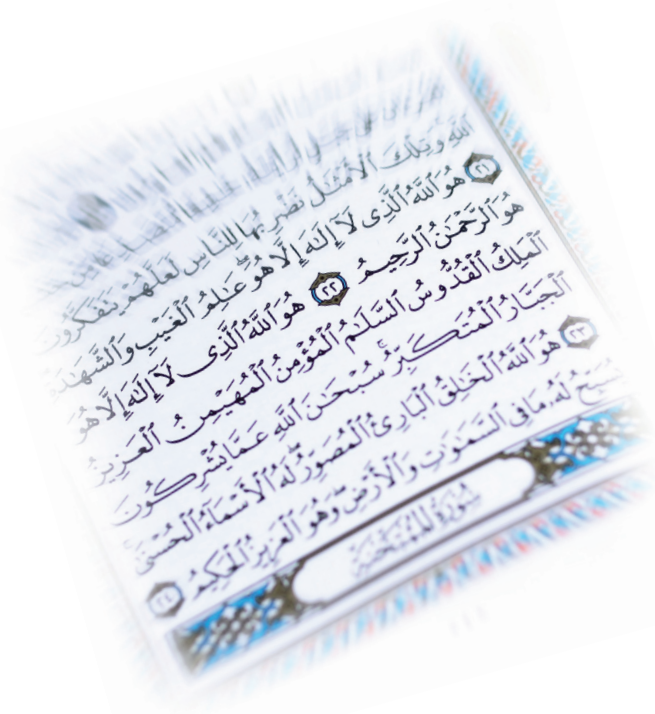 ٱللَّهِ وَتِلْكَ ٱلْأَمْثَٰلُ نَضْرِبُهَا لِلنَّاسِ لَعَلَّهُمْ يَتَفَكَّرُونَ
٢١ هُوَ ٱللَّهُ ٱلَّذِى لَآ إِلَٰهَ إِلَّا هُوَ ۖ عَٰلِمُ ٱلْغَيْبِ وَٱلشَّهَٰدَةِ
هُوَ ٱلرَّحْمَٰنُ ٱلرَّحِيمُ ٢٢ هُوَ ٱللَّهُ ٱلَّذِى لَآ إِلَٰهَ إِلَّا هُوَ
ٱلْمَلِكُ ٱلْقُدُّوسُ ٱلسَّلَٰمُ ٱلْمُؤْمِنُ ٱلْمُهَيْمِنُ ٱلْعَزِيزُ
ٱلْجَبَّارُ ٱلْمُتَكَبِّرُ ۚ سُبْحَٰنَ ٱللَّهِ عَمَّا يُشْرِكُونَ
٢٣ هُوَ ٱللَّهُ ٱلْخَٰلِقُ ٱلْبَارِئُ ٱلْمُصَوِّرُ ۖ لَهُ ٱلْأَسْمَآءُ ٱلْحُسْنَىٰ ۚ
يُسَبِّحُ لَهُۥ مَا فِى ٱلسَّمَٰوَٰتِ وَٱلْأَرْضِ ۖ وَهُوَ ٱلْعَزِيزُ ٱلْحَكِيمُ ٢٤
سُورَةُ ٱلْمُمْتَحَنَةِ